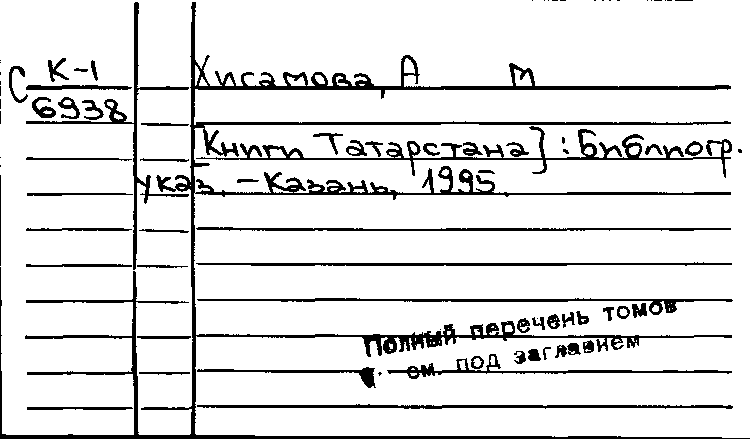 С К-1
6938
Хисамова, А М
[Книги Татарстана] : Библиогр.
указ. – Казань, 1995.
Полный перечень томов
см. под заглавием